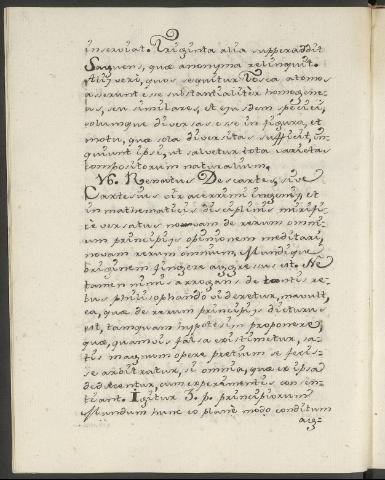 inserviat. Triginta alia supperaddit
Saguens, quæ anonyma relinquit.
Alij veri, quos sequitur Tosca atomos
asserunt esse substantialiter homogene-
as, seu similares, et ejusdem speciei,
solumque diversas esse in figura, et
motu, quæ sola diversitas sufficit, in-
quiunt ipsi, ut salvetur tota varietas
compositorum naturalium.
16. Renatus Descartes, sive
Cartesius vir acerrimi ingenij, et
in mathematicis disciplinis mirifi-
ce versatus novam de rerum omni-
um principijs opinionem meditari,
novam rerum omnium, Mundique
originem fingere aggressus est. Ne
tamen nimis arrogans de tantis re-
bus philosophando videretur, mavult,
ea, quæ de rerum principijs dicturus
est, tamquam hypotesim proponere,
quæ, quamvis falsa existimetur, sa-
tis magnum opere pretium se fecis-
se arbitratur, si omnia, quæ ex ipsa
deducentur, cum experimentis consen-
tiant. Igitur 3. p. principiorum
Mundum hunc eo plane modo conditum
aig-